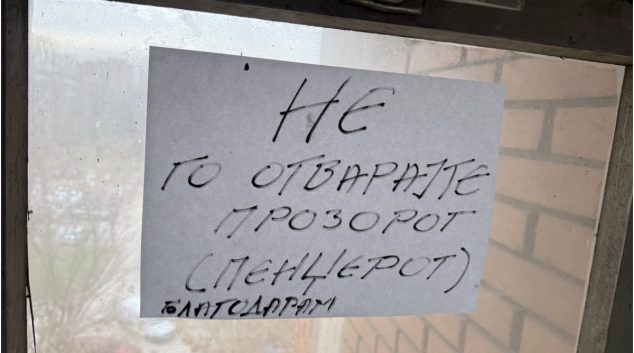 НЕ
ГО ОТВАРАЈТЕ
ПРОЗОРОТ
(ПЕНЏЕРОТ)
БЛАГОДАРАМ